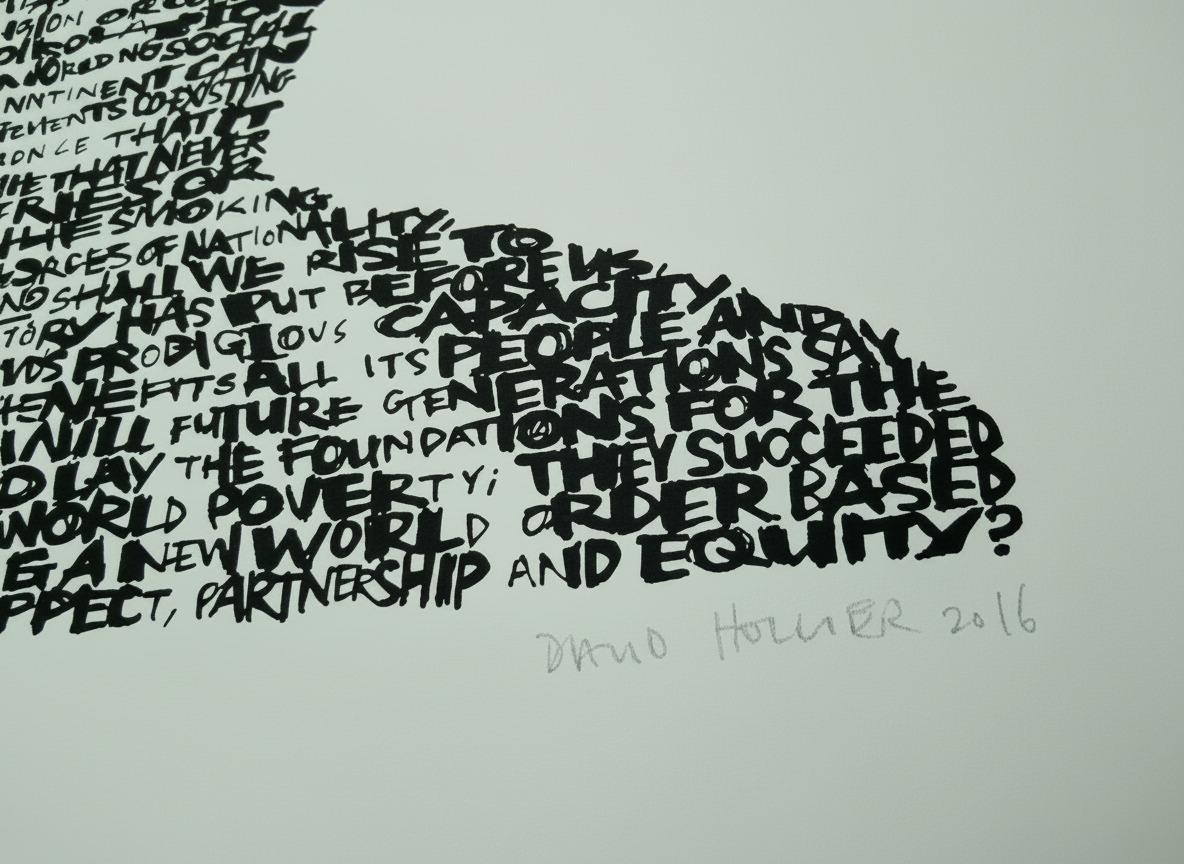 LIGION OR
WORLD NG SOCIAL
NTINENT CAN
EMENTS CO-EXISTING
ONCE THAT IT
THAT NEVER
RIES OR
THE SMOKING
FORCES OF NATIONALITY,
NO SHALL WE RISE TO
TORY HAS PUT BEFORE US,
PRODIGIOUS CAPACITY
ENEFITS ALL ITS PEOPLE AND
WILL FUTURE GENERATIONS SAY
D LAY THE FOUNDATIONS FOR THE
WORLD POVERTY; THEY SUCCEEDED
G A NEW WORLD ORDER BASED
PPECT, PARTNERSHIP AND EQUITY?
DAVID HOLLIER 2016